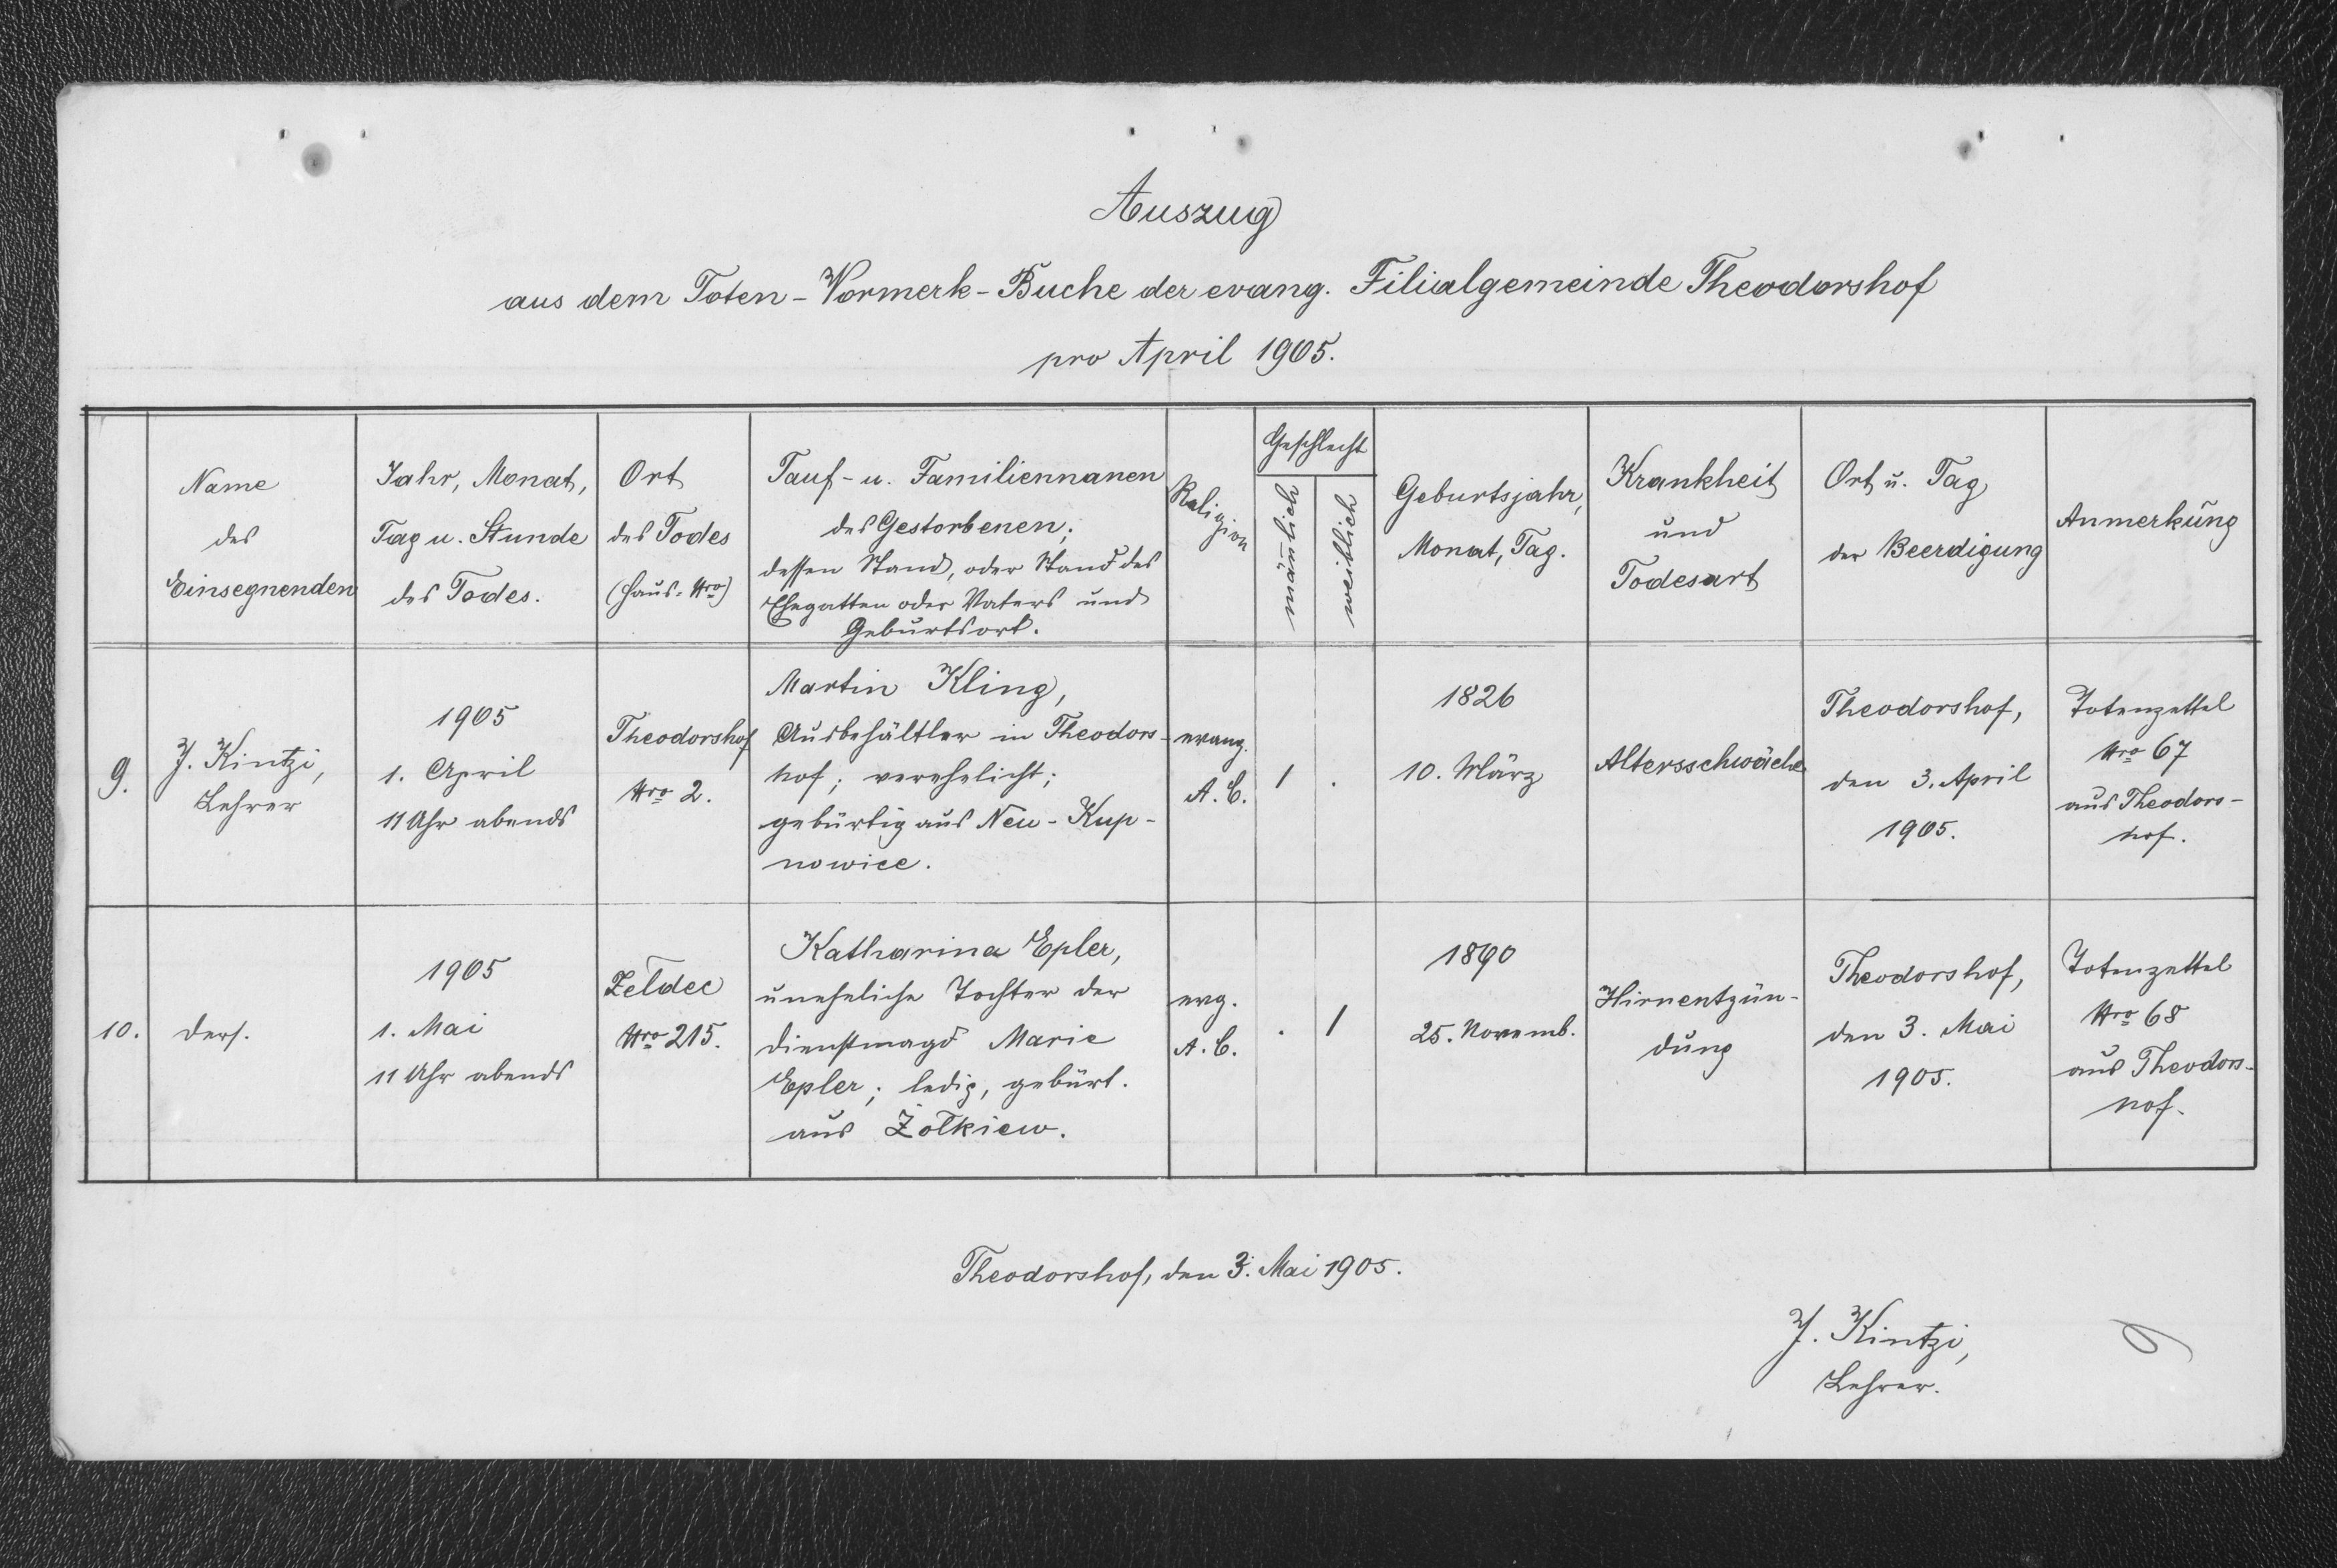 Auszug
aus dem Toten-Vormerk-Buche der evang. Filialgemeinde Theodorshof
pro April 1905.
Name
des
Einsegnenden
Jahr, Monat,
Tag u. Stunde
des Todes.
Ort
des Todes
(Haus-Nro)
Tauf- u. Familiennanen
des Gestorbenen;
dessen Stand, oder Stand des
Ehegatten oder Vaters und
Geburtsort.
Religion
Geschlecht
mänlich
weiblich
Geburtsjahr,
Monat, Tag.
Krankheit
und
Todesart
Ort u. Tag
der Beerdigung
Anmerkung
9.
J. Kintzi,
Lehrer
1905
1. April
11 Uhr abends
Theodorshof
Nro 2.
Martin Kling,
Ausbehältler in Theodors-
hof; verehelicht;
gebürtig aus Neu-Kup-
nowice.
evang.
A. C.
1
.
1826
10. März
Altersschwäche
Theodorshof,
den 3. April
1905.
Totenzettel
Nro 67
aus Theodors-
hof.
10.
ders.
1905
1. Mai
11 Uhr abends
Żeldec
Nro 215.
Katharina Epler,
uneheliche Tochter der
Dienstmagd Marie
Epler; ledig, gebürt.
aus Żołkiew.
evg.
A. C.
.
1
1890
25. Novemb.
Hirnentzün-
dung
Theodorshof,
den 3. Mai
1905.
Totenzettel
Nro 68
aus Theodors-
hof.
Theodorshof, den 3. Mai 1905.
J. Kintzi,
Lehrer.